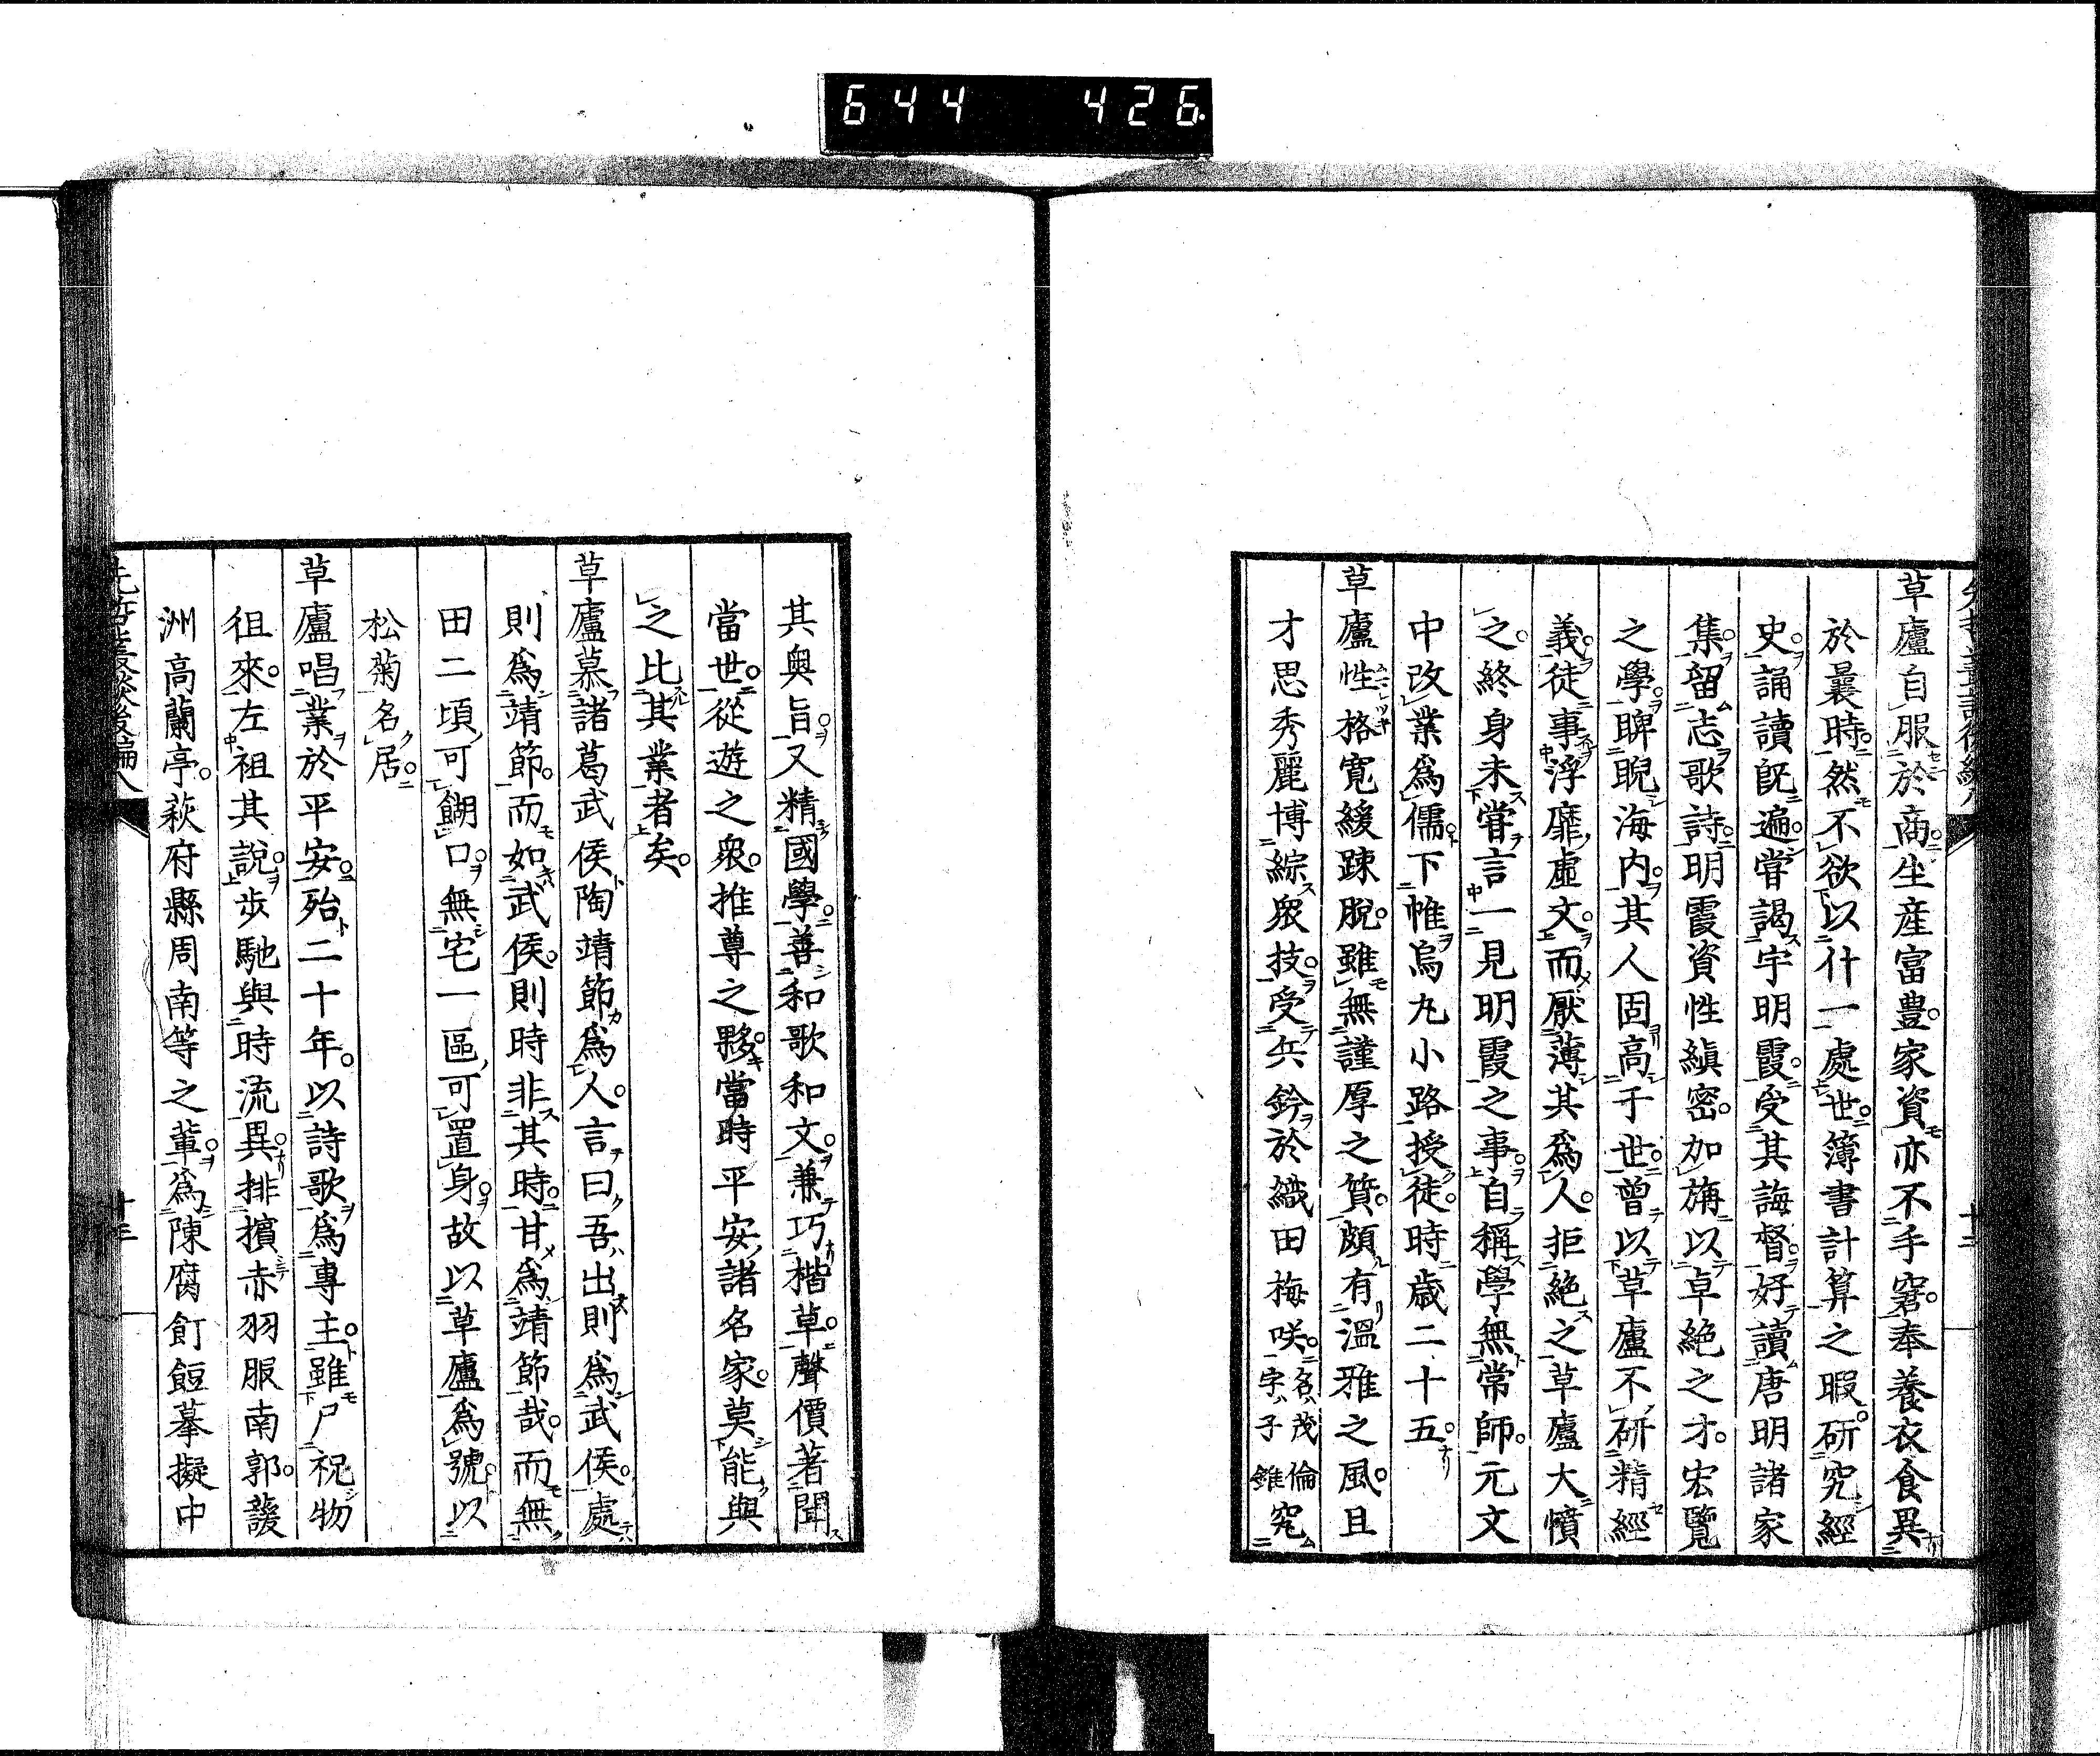 644 426
草廬自服於商坐産富豊家資亦不手窘奉養衣食異
於曩時然不欲以什一處世簿書計算之暇研究經
史誦讀既遍嘗謁宇明霞受其誨督好讀唐明諸家
集留志歌詩明霞資性縝密加旃以卓絶之才宏覽
之學睥睨海内其人固高于世曾以草廬不研精經
義徒事浮靡虚文而厭薄其爲人拒絶之草廬大憤
之終身未嘗言一見明霞之事自稱學無常師元文
中改業爲儒下帷烏丸小路授徒時歳二十五
草廬性格寛緩踈脱雖無謹厚之質頗有溫雅之風且
才思秀麗博綜衆技受兵鈐於織田梅咲名茂倫字子錐究
其奥旨又精國學善和歌和文兼巧楷草聲價著聞
當世從遊之衆推尊之夥當時平安諸名家莫能與
之比其業者矣
草廬慕諸葛武侯陶靖節爲人言曰吾出則爲武侯處
則爲靖節而如武侯則時非其時甘爲靖節哉而無
田二頃可餬口無宅一區可置身故以草廬爲號以
松菊名居
草廬唱業於平安殆二十年以詩歌爲專主雖尸祝物
徂來左袒其說歩馳與時流異排擯赤羽服南郭諼
洲高蘭亭萩府縣周南等之輩爲陳腐飣餖摹擬中